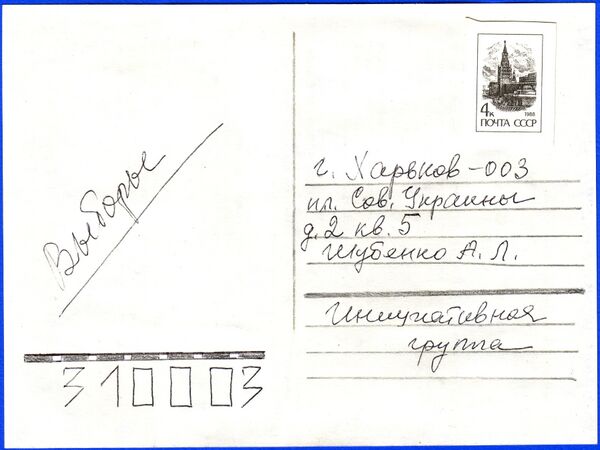 4к
1988
ПОЧТА СССР
г. Харьков-003
пл. Сов. Украины
д. 2 кв. 5
Шубенко А. Л.
Инициативная
группа
Выборы
310003